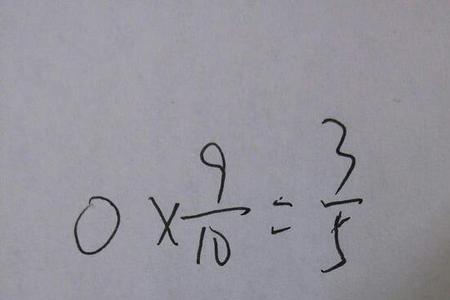 0 × 9/10 = 3/5